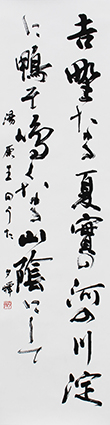 吉野なる夏實の河の川淀
に鴨そ鳴くなる山陰にして
湯原王のうた